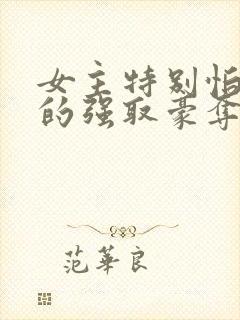 女主特别怕
的强取豪夺
范华良